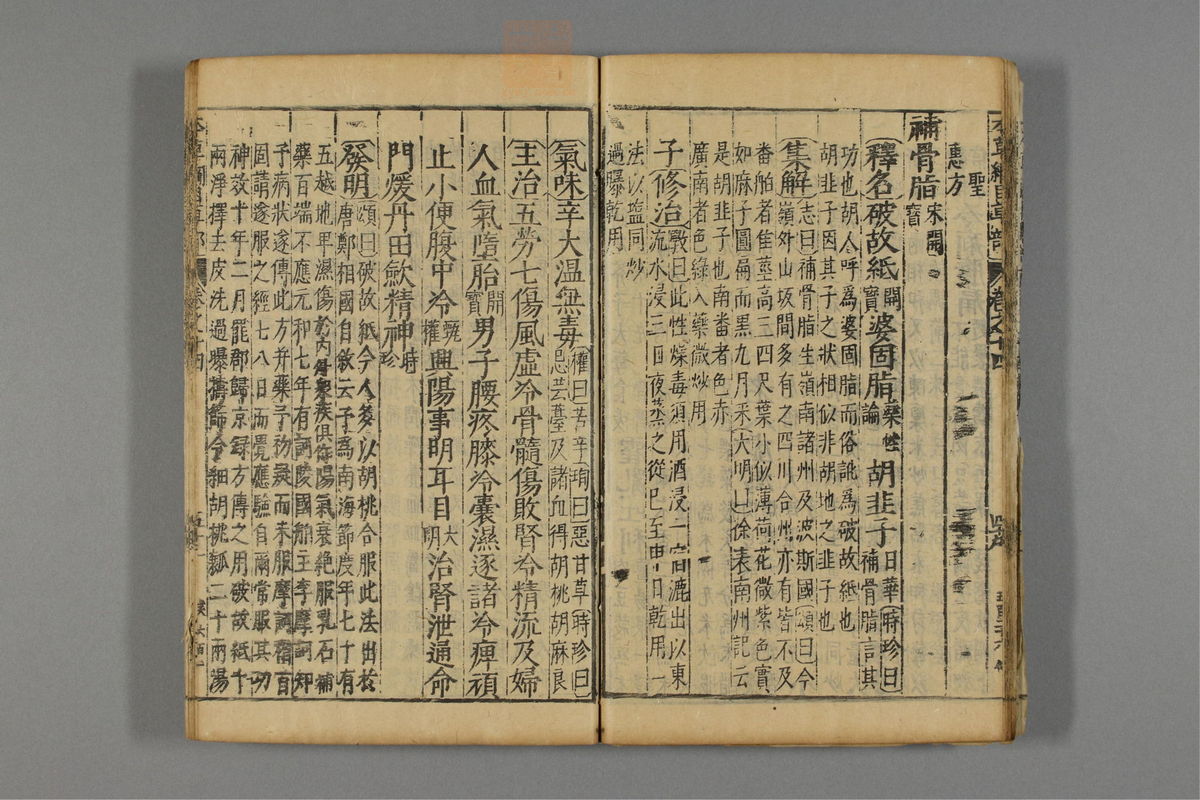 聖
惠方
補骨脂宋開寶
釋名破故紙開寶婆固脂藥性論胡韭子日華時珍曰補骨脂言其
功也胡人呼爲婆固脂而俗訛爲破故紙也
胡韭子因其子之狀相似非胡地之韭子也
集解志曰補骨脂生嶺南諸州及波斯國頌曰今
嶺外山坂間多有之四川合州亦有皆不及
番舶者佳莖高三四尺葉小似薄荷花微紫色實
如麻子圓扁而黑九月采大明曰徐表南州記云
是胡韭子也南番者色赤
廣南者色綠入藥微炒用
子修治斆曰此性燥毒須用酒浸一宿漉出以東
流水浸三日夜蒸之從巳至申日乾用一
法以鹽同炒
過曝乾用
氣味辛大温無毒權曰苦辛珣曰惡甘草時珍曰
忌芸薹及諸血得胡桃胡麻良
主治五勞七傷風虛冷骨髓傷敗腎冷精流及婦
人血氣墮胎開寶男子腰疼膝冷囊濕逐諸冷痺頑
止小便腹中冷甄權興陽事明耳目大明治腎泄通命
門煖丹田歛精神時珍
發明頌曰破故紙今人多以胡桃合服此法出於
唐鄭相國自敘云予爲南海節度年七十有
五越地卑濕傷於內外衆疾俱作陽氣衰絶服乳石補
藥百端不應元和七年有訶陵國舶主李摩訶知
予病狀遂傳此方并藥予初疑而未服摩訶稽首
固請遂服之經七八日而覺應驗自爾常服其功
神效十年二月罷郡歸京録方傳之用破故紙十
兩淨擇去皮洗過曝擣篩令細胡桃瓤二十兩湯